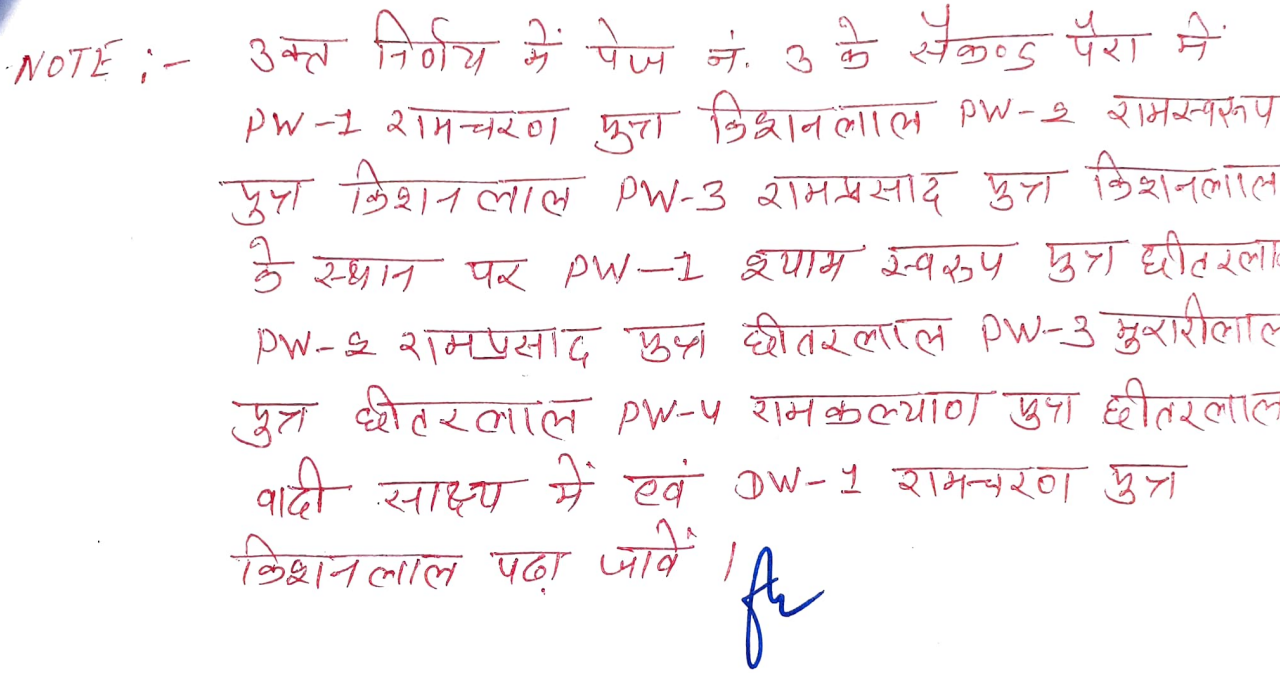 NOTE :- उक्त निर्णय में पेज नं. 3 के सैकण्ड पैरा में
PW-1 रामचरण पुत्र किशनलाल PW-2 रामस्वरूप
पुत्र किशनलाल PW-3 रामप्रसाद पुत्र किशनलाल
के स्थान पर PW-1 श्याम स्वरूप पुत्र छीतरलाल
PW-2 रामप्रसाद पुत्र छीतरलाल PW-3 मुरारीलाल
पुत्र छीतरलाल PW-4 रामकल्याण पुत्र छीतरलाल
वादी साक्ष्य में एवं DW-1 रामचरण पुत्र
किशनलाल पढा़ जावें ।